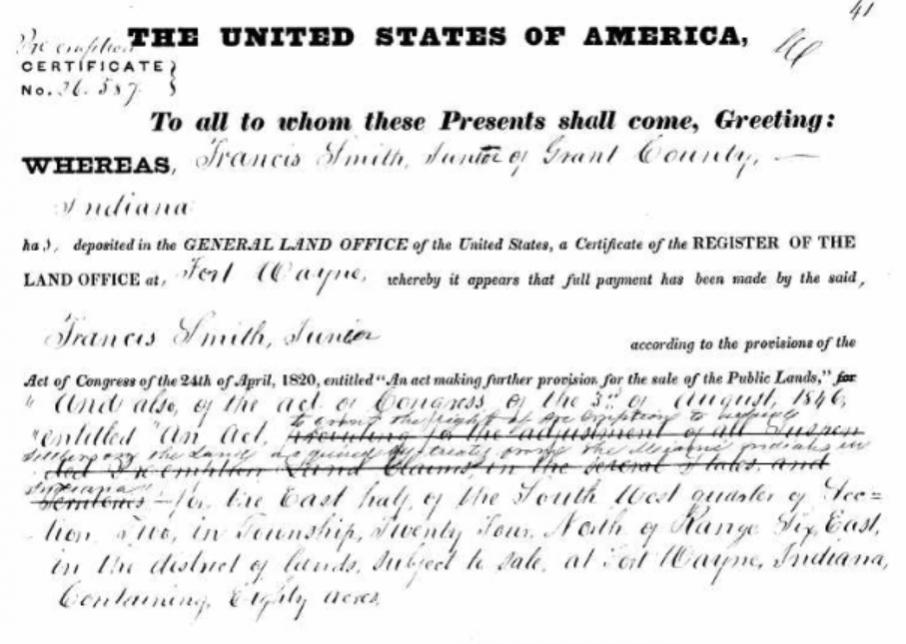 41
Pre emption THE UNITED STATES OF AMERICA,
CERTIFICATE }
No. 26.587 }
To all to whom these Presents shall come, Greeting:
WHEREAS, Francis Smith, Junior of Grant County, —
Indiana
has, deposited in the GENERAL LAND OFFICE of the United States, a Certificate of the REGISTER OF THE
LAND OFFICE at, Fort Wayne, whereby it appears that full payment has been made by the said,
Francis Smith, Junior according to the provisions of the
Act of Congress of the 24th of April, 1820, entitled "An act making further provision for the sale of the Public Lands," for
" And also, of the act of Congress, of the 3rd of August, 1846,
to grant the right of pre emption to actual
"entitled "An Act, providing for the adjustment of all Suspen
settlers on the Lands acquired by treaty the Miami Indians in
ded Pre emption Land Claims, in the several States, and
Indiana"
Territories — for the East half, of the South West quarter of Sec=
tion Two, in Township, Twenty Four, North of Range Six, East,
in the district of lands, subject to sale, at Fort Wayne, Indiana,
Containing, Eighty acres,